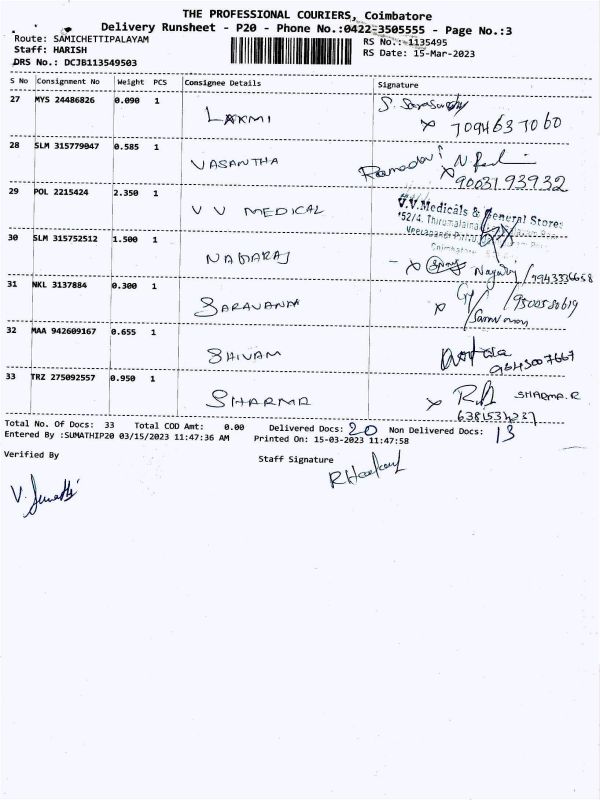 THE PROFESSIONAL COURIERS, Coimbatore
Delivery Runsheet - P20 - Phone No.:0422-3505555 - Page No.:3
Route: SAMICHETTIPALAYAM RS No.:-1135495
Staff: HARISH RS Date: 15-Mar-2023
DRS No.: DCJB113549503
S No Consignment No Weight PCS Consignee Details Signature
27 MYS 24486826 0.090 1 LAXMI
28 SLM 315779047 0.585 1 VASANTHA
90031 93932
29 POL 2215424 2.350 1 V V MEDICAL V.V.Medicals & General Stores
30 SLM 315752512 1.500 1 NADARAJ 9943336658
31 NKL 3137884 0.300 1 SARAVANA
32 MAA 942609167 0.655 1 SHIVAM
9843007667
33 TRZ 275092557 0.950 1 SHARMA SHARMA.R
Total No. Of Docs: 33 Total COD Amt: 0.00 Delivered Docs: 20 Non Delivered Docs: 13
Entered By :SUMATHIP20 03/15/2023 11:47:36 AM Printed On: 15-03-2023 11:47:58
Verified By Staff Signature